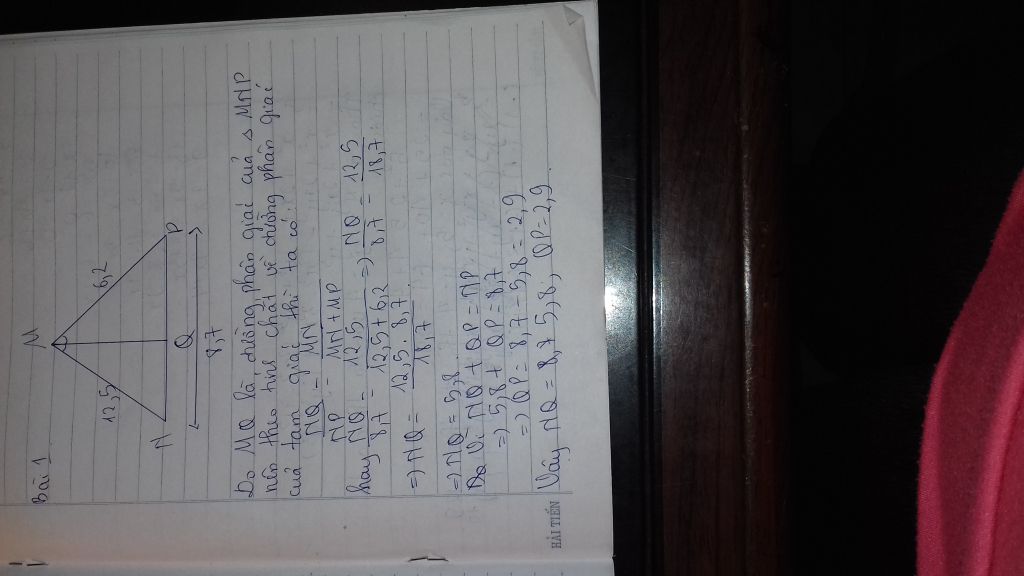 Bài 1
M
12,5
6,2
N
Q
P
8,7
Do MQ là đường phân giác của △ MNP
nên theo tính chất về đường phân giác
của tam giác thì ta có:
NQ/NP = MN/(MN+MP)
hay NQ/8,7 = 12,5/(12,5+6,2) => NQ/8,7 = 12,5/18,7
=> NQ = (12,5 . 8,7)/18,7
=> NQ = 5,8
NQ + QP = NP
=> 5,8 + QP = 8,7
=> QP = 8,7 - 5,8 = 2,9
Vậy NQ = 8,7 5,8, QP = 2,9.
HẢI TIẾN